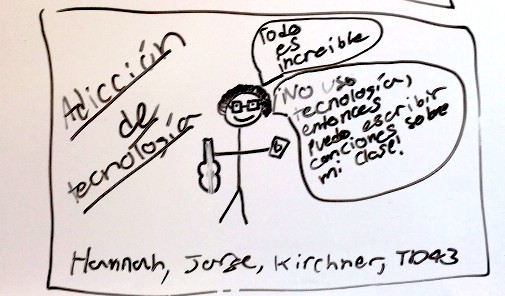 Adicción
de
tecnología
Todo
es
increíble
No uso
tecnología,
entonces
puedo escribir
canciones sobre
mi clase!
Hannah, Jorge, Kirchner, T1043